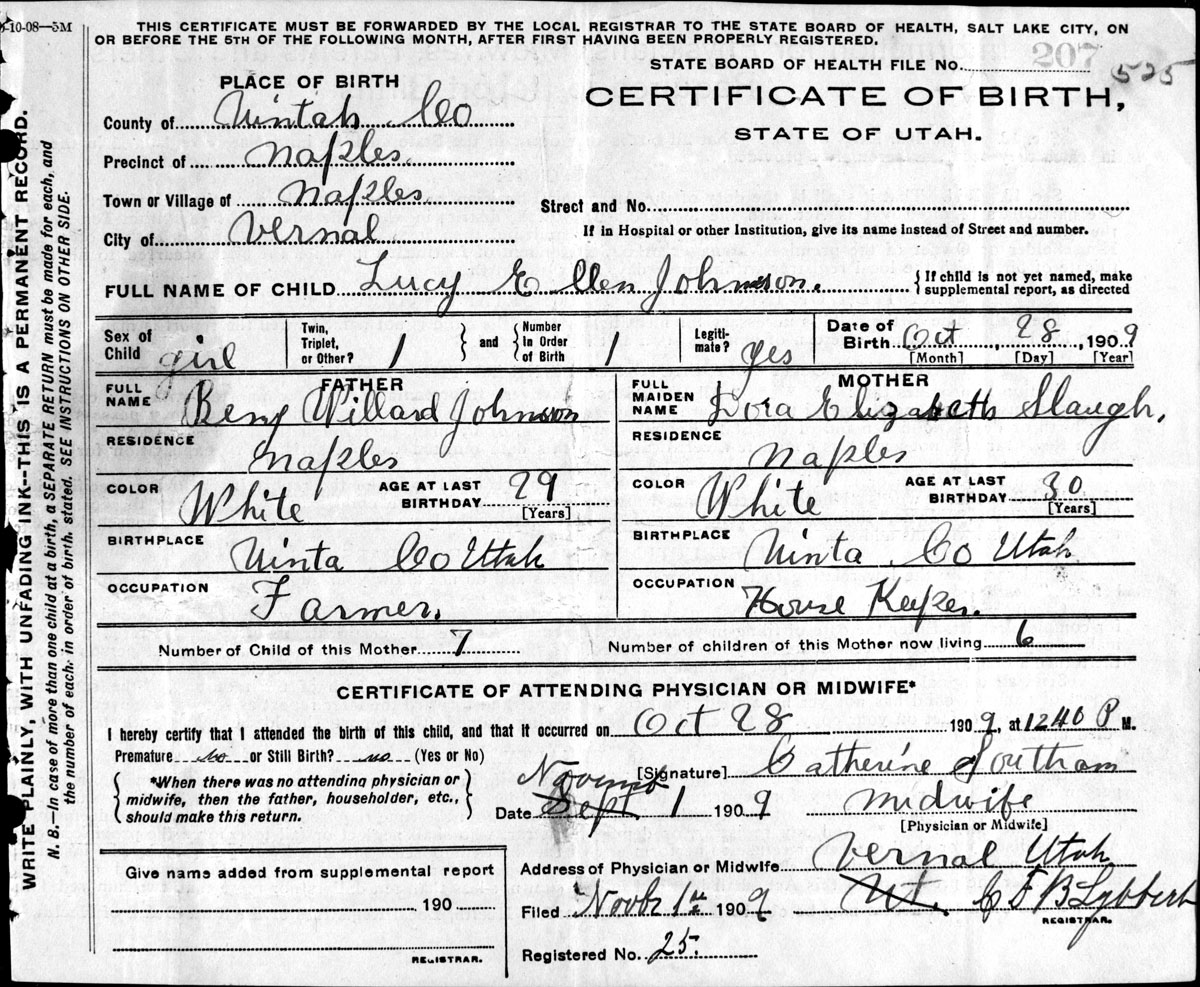 -10-08—5M
THIS CERTIFICATE MUST BE FORWARDED BY THE LOCAL REGISTRAR TO THE STATE BOARD OF HEALTH, SALT LAKE CITY, ON
OR BEFORE THE 5TH OF THE FOLLOWING MONTH, AFTER FIRST HAVING BEEN PROPERLY REGISTERED.
STATE BOARD OF HEALTH FILE NO. 207 525
PLACE OF BIRTH
CERTIFICATE OF BIRTH,
STATE OF UTAH.
County of Uintah Co
Precinct of Naples.
Town or Village of Naples.
Street and No.
City of Vernal
If in Hospital or other Institution, give its name instead of Street and number.
FULL NAME OF CHILD Lucy Ellen Johnson. { If child is not yet named, make
supplemental report, as directed
Sex of Child girl
Twin, Triplet, or Other? 1 } and { Number In Order of Birth 1
Legiti-mate? yes
Date of Birth Oct, 28, 1909
[Month] [Day] [Year]
FATHER
FULL NAME Benj Willard Johnson
RESIDENCE Naples
COLOR White AGE AT LAST BIRTHDAY 29
[Years]
BIRTHPLACE Uinta Co Utah
OCCUPATION Farmer.
MOTHER
FULL MAIDEN NAME Dora Elizabeth Slaugh.
RESIDENCE Naples
COLOR White AGE AT LAST BIRTHDAY 30
[Years]
BIRTHPLACE Uinta Co Utah
OCCUPATION House Keeper.
Number of Child of this Mother 7 Number of children of this Mother now living 6
CERTIFICATE OF ATTENDING PHYSICIAN OR MIDWIFE*
I hereby certify that I attended the birth of this child, and that it occurred on Oct 28 1909, at 1240 P M.
Premature no or Still Birth? no (Yes or No)
[Signature] Catherine Southam
{ *When there was no attending physician or
midwife, then the father, householder, etc.,
should make this return. }
Novemb
Date Sept 1 1909 midwife
[Physician or Midwife]
Give name added from supplemental report
190
REGISTRAR.
Address of Physician or Midwife Vernal Utah
Filed Novbr 1st 1909 Ut. C F B Lybbert
REGISTRAR.
Registered No. 25.
WRITE PLAINLY, WITH UNFADING INK--THIS IS A PERMANENT RECORD.
N. B.—In case of more than one child at a birth, a SEPARATE RETURN must be made for each, and
the number of each, in order of birth, stated. SEE INSTRUCTIONS ON OTHER SIDE.